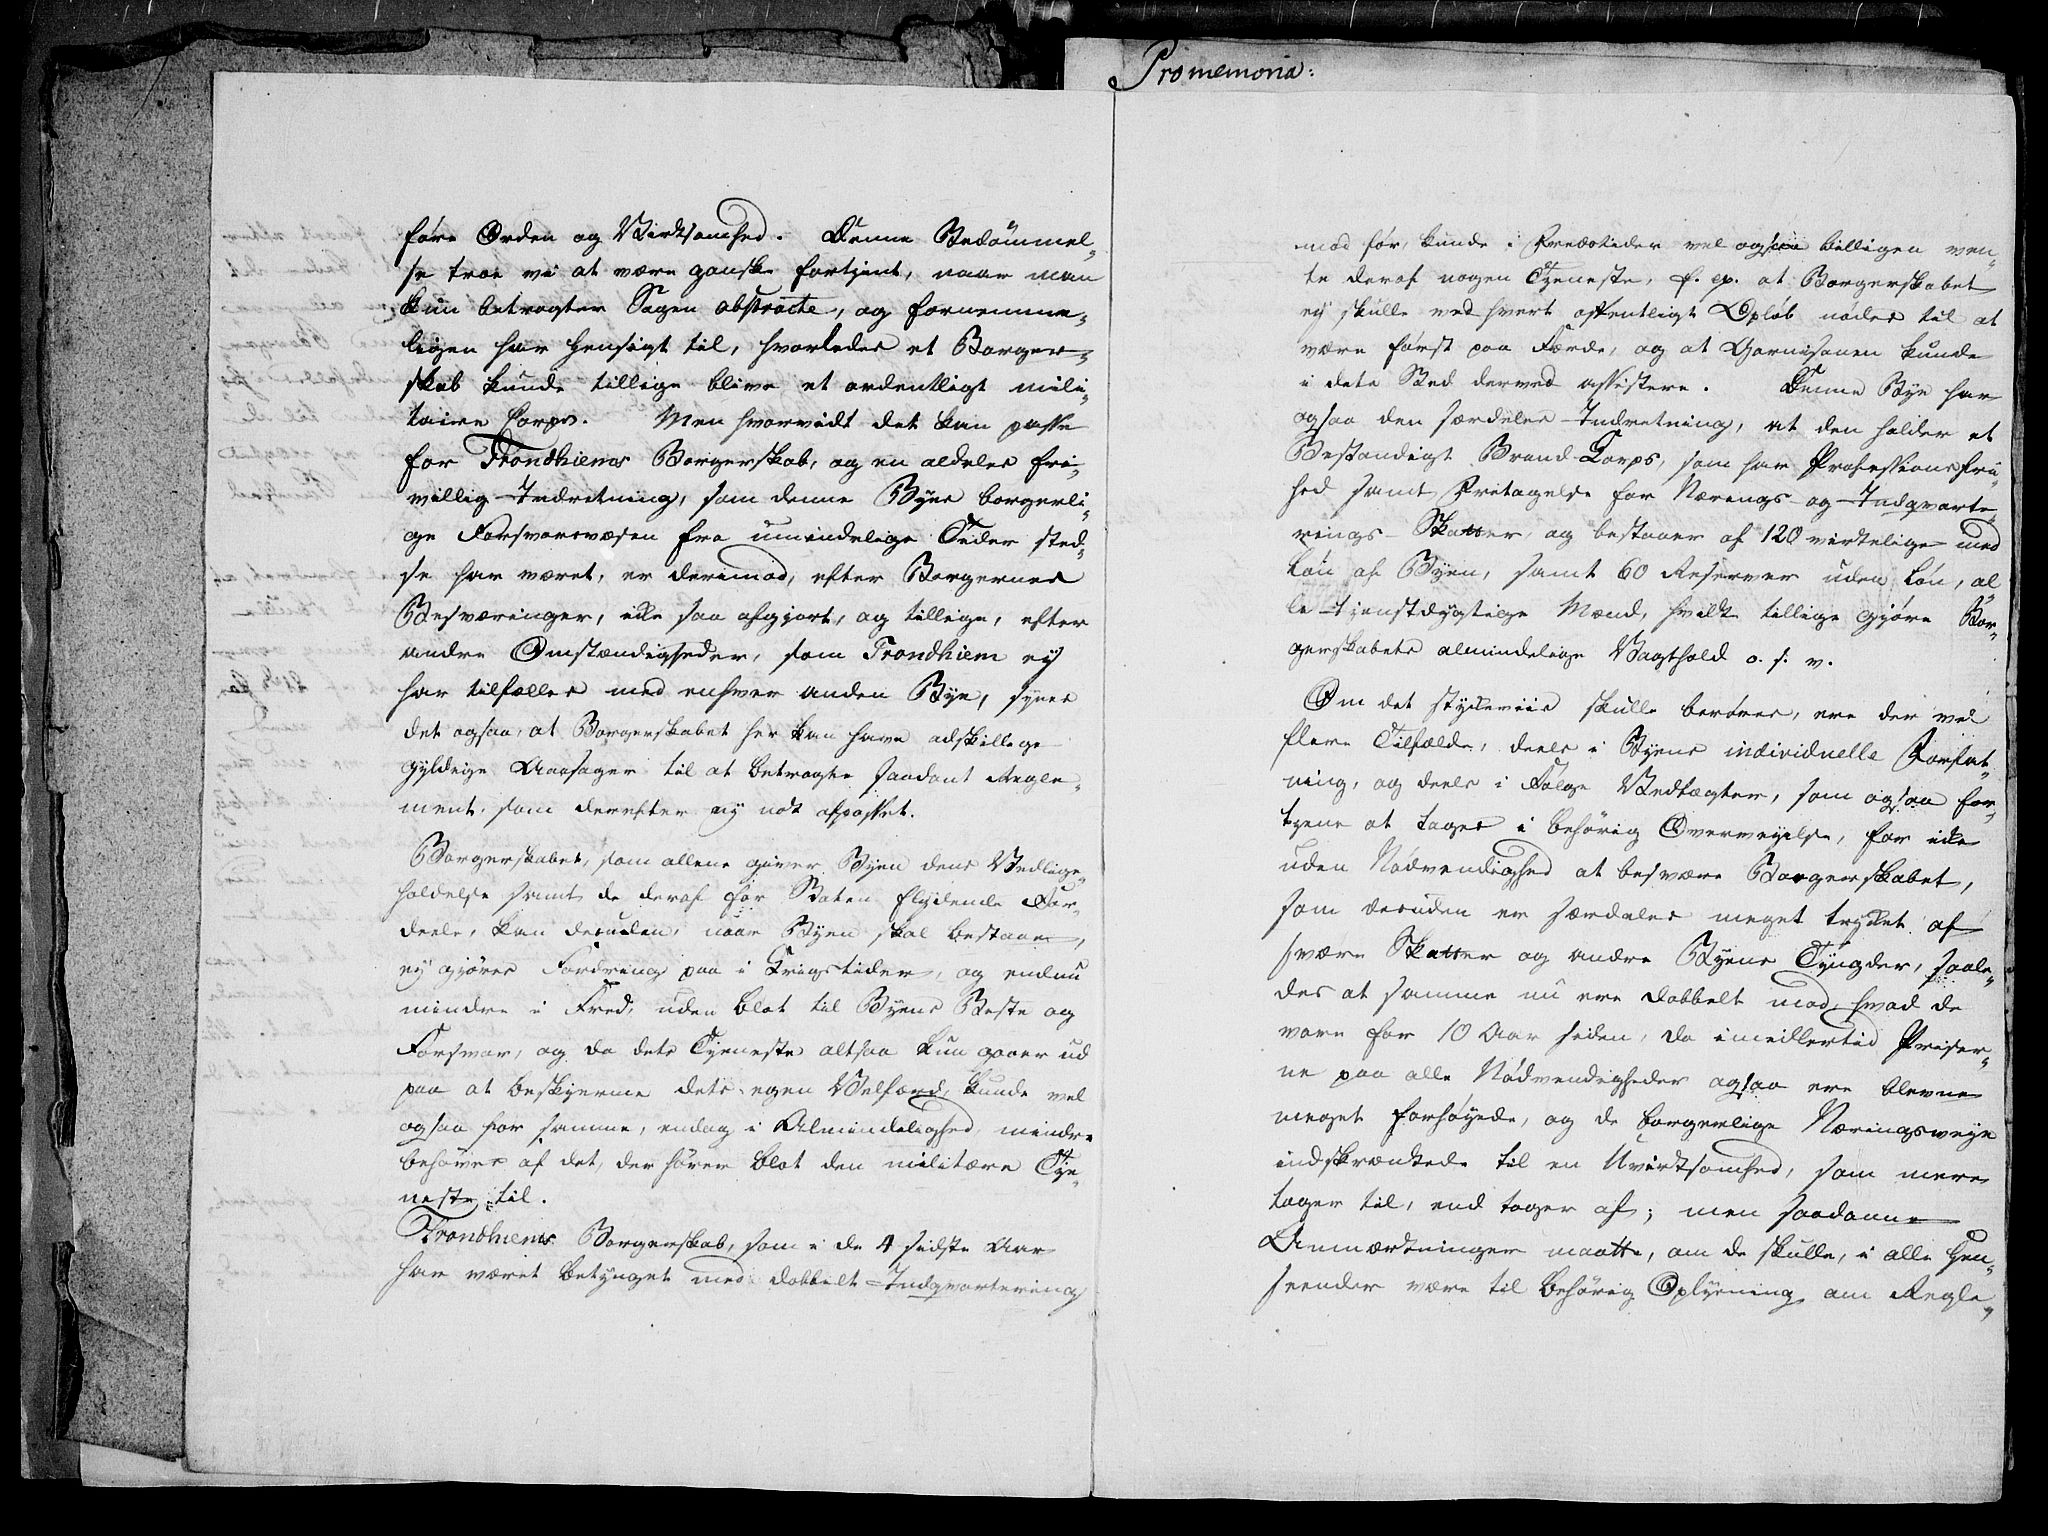 føre Orden og Virksomhed. Denne Bedømmel-
se troe vi at være ganske fortient, naar man
kun betragter Sagen abstracte, og fornemme-
ligen har Hensigt til, hvorledes et Borger-
skab kunde tillige blive et ordentligt mili-
taire Corps. Men hvorvidt det kan passe
for Trondhiems Borgerskab, og en aldeles fri-
villig Indretning, som denne Byes borgerli-
ge Forsvarsvæsen fra umindelige Tider sted-
se har været, er derimod, efter Borgernes
Besværinger, ikke saa afgiort, og tillige, efter
andre Omstændigheder, som Trondhiem ey
har tilfælles med enhver anden Bye, synes
det ogsaa, at Borgerskabet her kan have adskillige
gyldige Aarsager til at betragte saadant Regle-
ment, som derefter ey nok afpasset.
Borgerskabet, som allene giver Byen dens Vedlige-
holdelse samt de deraf for Staten flydende For-
deele, kan desuden, naar Byen skal bestaae,
ey giøres Fordring paa i Krigstider, og endnu
mindre i Fred, uden blot til Byens Beste og
Forsvar, og da dets Tjeneste altsaa kun gaaer ud
paa at beskjerme dets egen Velfærd, kunde vel
ogsaa for samme, endog i Almindelighed, mindre
behøves af det, der hører blot den militære Tje-
neste til.
Trondhiems Borgerskab, som i de 4 sidste Aar
har været betynget med dobbelt Indqvartering
Promemoria:
mod før, kunde i Fredstider vel ogsaa billigen ven-
te deraf nogen Tjeneste, f. ex. at Borgerskabet
ey skulle ved hvert offentligt Opløb nødes til at
være først paa Færde, og at Garnisonen kunde
i dets Sted derved assistere. Denne Bye har
ogsaa den særdeles Indretning, at den holder et
Bestandigt Brand-Corps, som har Professions Fri-
hed samt Fritagelse for Nærings- og Indqvarte-
rings-Skatter, og bestaaer af 120 virkelige med
Løn af Byen, samt 60 Reserver uden Løn, al-
le tjenstdygtige Mænd, hvilke tillige gjøre Bor-
gerskabets almindelige Vagthold o. s. v.
Om det stykkeviis skulle berøres, ere der vel
flere Tilfælde, deels i Byens individuelle Forfat-
ning, og deels i Følge Vedtægter, som ogsaa for-
tjene at tages i behørig Overvejelse, for ikke
uden Nødvendighed at besvære Borgerskabet,
som desuden er særdeles meget trykket af
svære Skatter og andre Byens Tyngder, saale-
des at samme nu ere dobbelt mod, hvad de
vare for 10 Aar siden, da imidlertid Priser-
ne paa alle Nødvendigheder ogsaa ere blevne
meget forhøyede, og de borgerlige Næringsveye
indskrænkede til en Uvirksomhed, som mere
tager til, end tager af; men saadanne
Anmærkninger maatte, om de skulle, i alle Hen-
seender være til behørig Oplysning om Regle-